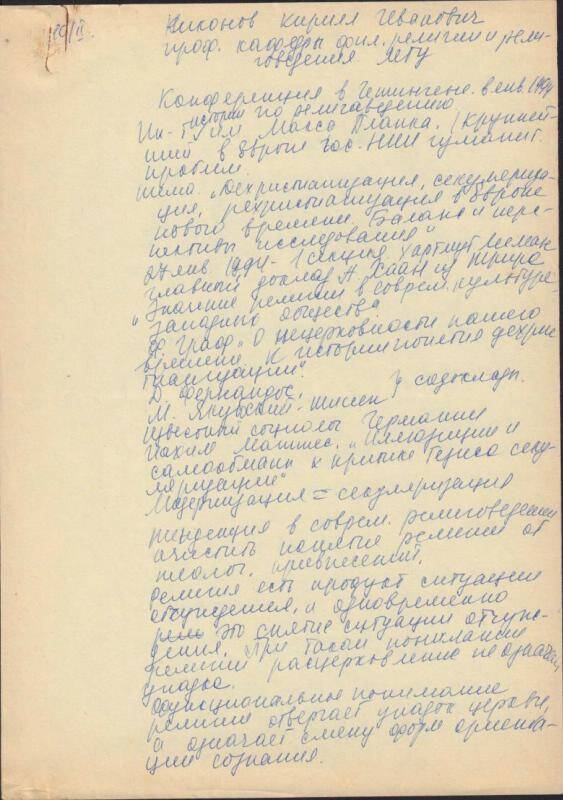 20/II.
Никонов Кирилл Иванович
проф. кафедры фил. религии и рели-
говедения МГУ
Конференция в Геттингене. в янв. 1994
Ин-т истории им Макса Планка. (Крупней-
ший в Европе гос. НИИ гуманит.
проблем.
тема. "Дехристианизация, секуляриза-
ция, рехристианизация в Европе
нового времени. Баланс и перс-
пективы исследования"
27 янв. 1994 - 1 секция Хартмут Леман
главный доклад А. Хаан из Трира
"Значение религии в соврем. культуре
западного общества
Ф. Граф "О нецерковности нашего
времени. К истории понятия дехрис
тианизации".
Д. Фернандос,
М. Якубовский-Тиссен } содоклад.
Известный социолог Германии
Иоахим Маттес. "Иллюзии и
самообман к критике тезиса секу-
ляризации"
Модернизация = секуляризация
тенденция в соврем. религиоведении
очистить понятие религии от
теолог. привнесений.
религия есть продукт ситуации
отчуждения, и одновременно
это снятие ситуации отчуж-
дения. При таком понимании
религии расцерковление не означает
упадка.
Функциональное понимание
религии отвергает упадок церкви,
а означает смену форм ориента-
ции сознания.